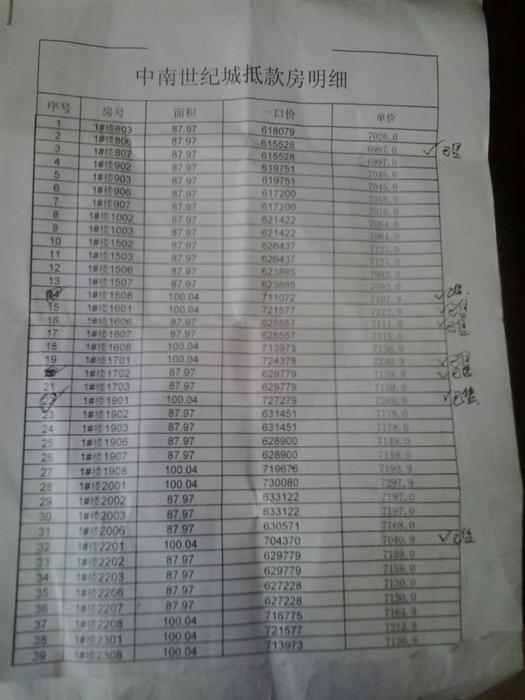 中南世纪城抵款房明细
序号 房号 面积 一口价 单价
1 1#楼803 87.97 618079 7026.0
2 1#楼806 87.97 615528 6997.0
3 1#楼807 87.97 615528 6997.0 ✓已售
4 1#楼902 87.97 619751 7045.0
5 1#楼903 87.97 619751 7045.0
6 1#楼906 87.97 617200 7016.0
7 1#楼907 87.97 617200 7016.0
8 1#楼1002 87.97 621422 7064.0
9 1#楼1003 87.97 621422 7064.0
10 1#楼1502 87.97 626437 7121.0
11 1#楼1503 87.97 626437 7121.0
12 1#楼1506 87.97 623885 7092.0
13 1#楼1507 87.97 623885 7092.0
14 1#楼1508 100.04 711072 7107.9 ✓已售
15 1#楼1601 100.04 721577 7212.9 ✓已售
16 1#楼1606 87.97 625557 7111.0 ✓已售
17 1#楼1607 87.97 625557 7111.0
18 1#楼1608 100.04 713973 7136.9
19 1#楼1701 100.04 724378 7240.9 ✓已售
1#楼1702 87.97 629779 7159.0 ✓已售
21 1#楼1703 87.97 629779 7159.0
22 1#楼1901 100.04 727279 7269.9 ✓已售
23 1#楼1902 87.97 631451 7178.0
24 1#楼1903 87.97 631451 7178.0
25 1#楼1906 87.97 628900 7149.0
26 1#楼1907 87.97 628900 7149.0
27 1#楼1908 100.04 719676 7193.9
28 1#楼2001 100.04 730080 7297.9
29 1#楼2002 87.97 633122 7197.0
30 1#楼2003 87.97 633122 7197.0
31 1#楼2006 87.97 630571 7168.0
32 1#楼2201 100.04 704370 7040.9 ✓已售
33 1#楼2202 87.97 629779 7159.0
34 1#楼2203 87.97 629779 7159.0
35 1#楼2206 87.97 627228 7130.0
36 1#楼2207 87.97 627228 7130.0
37 1#楼2208 100.04 716775 7164.9
38 1#楼2301 100.04 721577 7212.9
39 1#楼2308 100.04 713973 7136.9